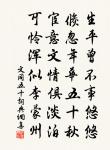 生平曾不事悠悠
倏忽年華五十秋
宦意文情俱淡泊
可怜浑似李蒙州
文同五十词兵纲孝